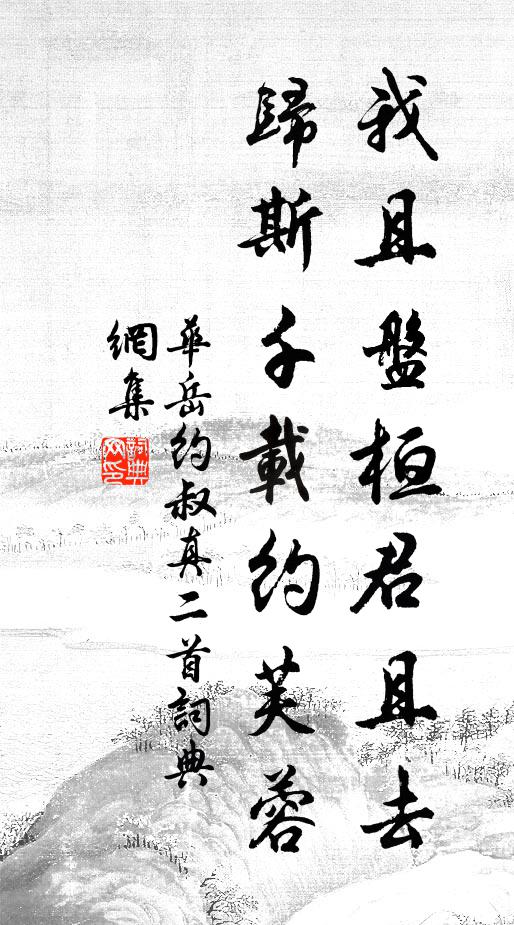 我且盤桓君且去
歸斯千載約芙蓉
華岳約叔真二首詞典
網集